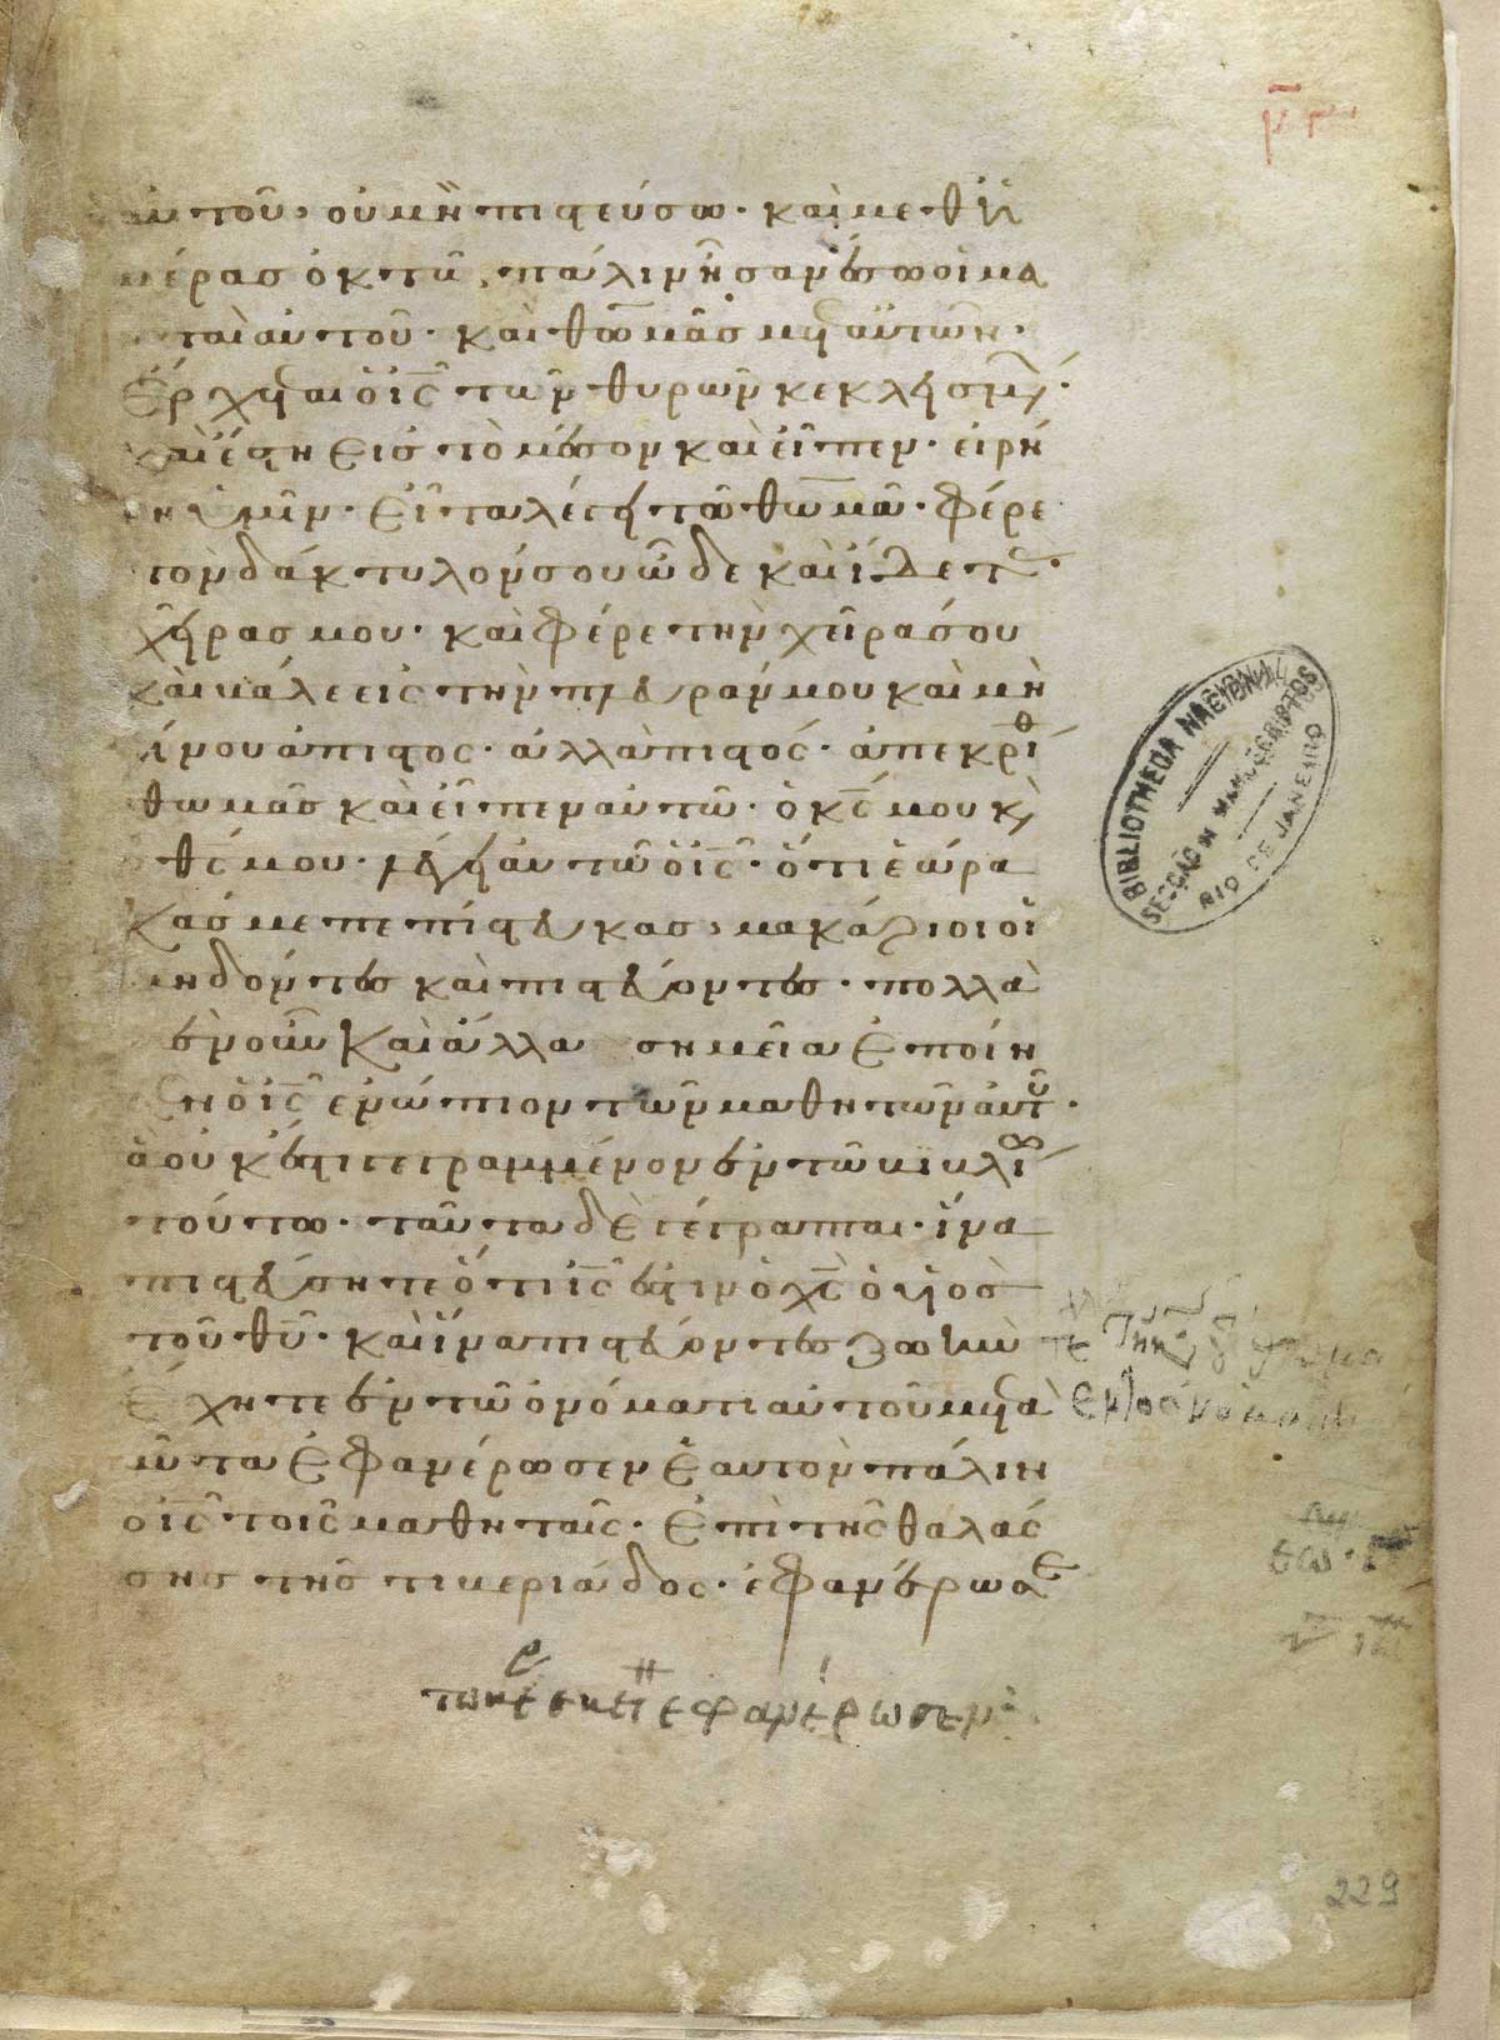 αυτοῦ, οὐ μὴ πιστεύσω· καὶ μεθ ἡ
μέρας ὀκτὼ, πάλιν ἦσαν ἔσω οἱ μα
ταὶ αὐτοῦ· καὶ θωμᾶς μετ αὐτῶν·
Ἔρχεται ὁ ις τῶν θυρῶν κεκλεισμ·
καὶ ἔστη εἰς τὸ μέσον καὶ εἶπεν· εἰρή
νη ὑμῖν· Εἶτα λέγει τῶ θωμᾶ· φέρε
τὸν δάκτυλόν σου ὧδε καὶ ἴδε τ·
χεῖρας μου· καὶ φέρε τὴν χεῖρά σου
καὶ βάλε εἰς τὴν πλευράν μου καὶ μὴ
γίνου ἄπιστος· ἀλλὰ πιστός· ἀπεκρίθ
θωμᾶς καὶ εἶπεν αὐτῶ· ὁ κς μου κ
ὁ θς μου· λέγει αὐτῶ ὁ ις· ὅτι ἑώρα
κάς με πεπίστευκας, μακάριοι οἱ
μὴ ἰδόντες καὶ πιστεύοντες· πολλὰ
μὲν οὖν καὶ ἄλλα σημεῖα ἐποίη
σεν ὁ ις ἐνώπιον τῶν μαθητῶν αὐτοῦ·
ἃ οὐκ ἔστι γεγραμμένον ἐν τῶ βιβλίω
τούτω· ταῦτα δὲ γέγραπται· ἵνα
πιστεύσητε ὅτι ις ἐστιν ὁ χς ὁ υἱὸς
τοῦ θυ· καὶ ἵνα πιστεύοντες ζωὴν
ἔχητε ἐν τῶ ὀνόματι αὐτοῦ μετὰ
ταῦτα ἐφανέρωσεν ἑαυτὸν πάλιν
ὁ ις τοῖς μαθηταῖς· ἐπὶ τῆς θαλάσ
σης τῆς τιβεριάδος· ἐφανέρωσε
ἐφανέρωσεν
BIBLIOTHECA NACIONAL
SECÇÃO DE MANUSCRIPTOS
RIO DE JANEIRO
229